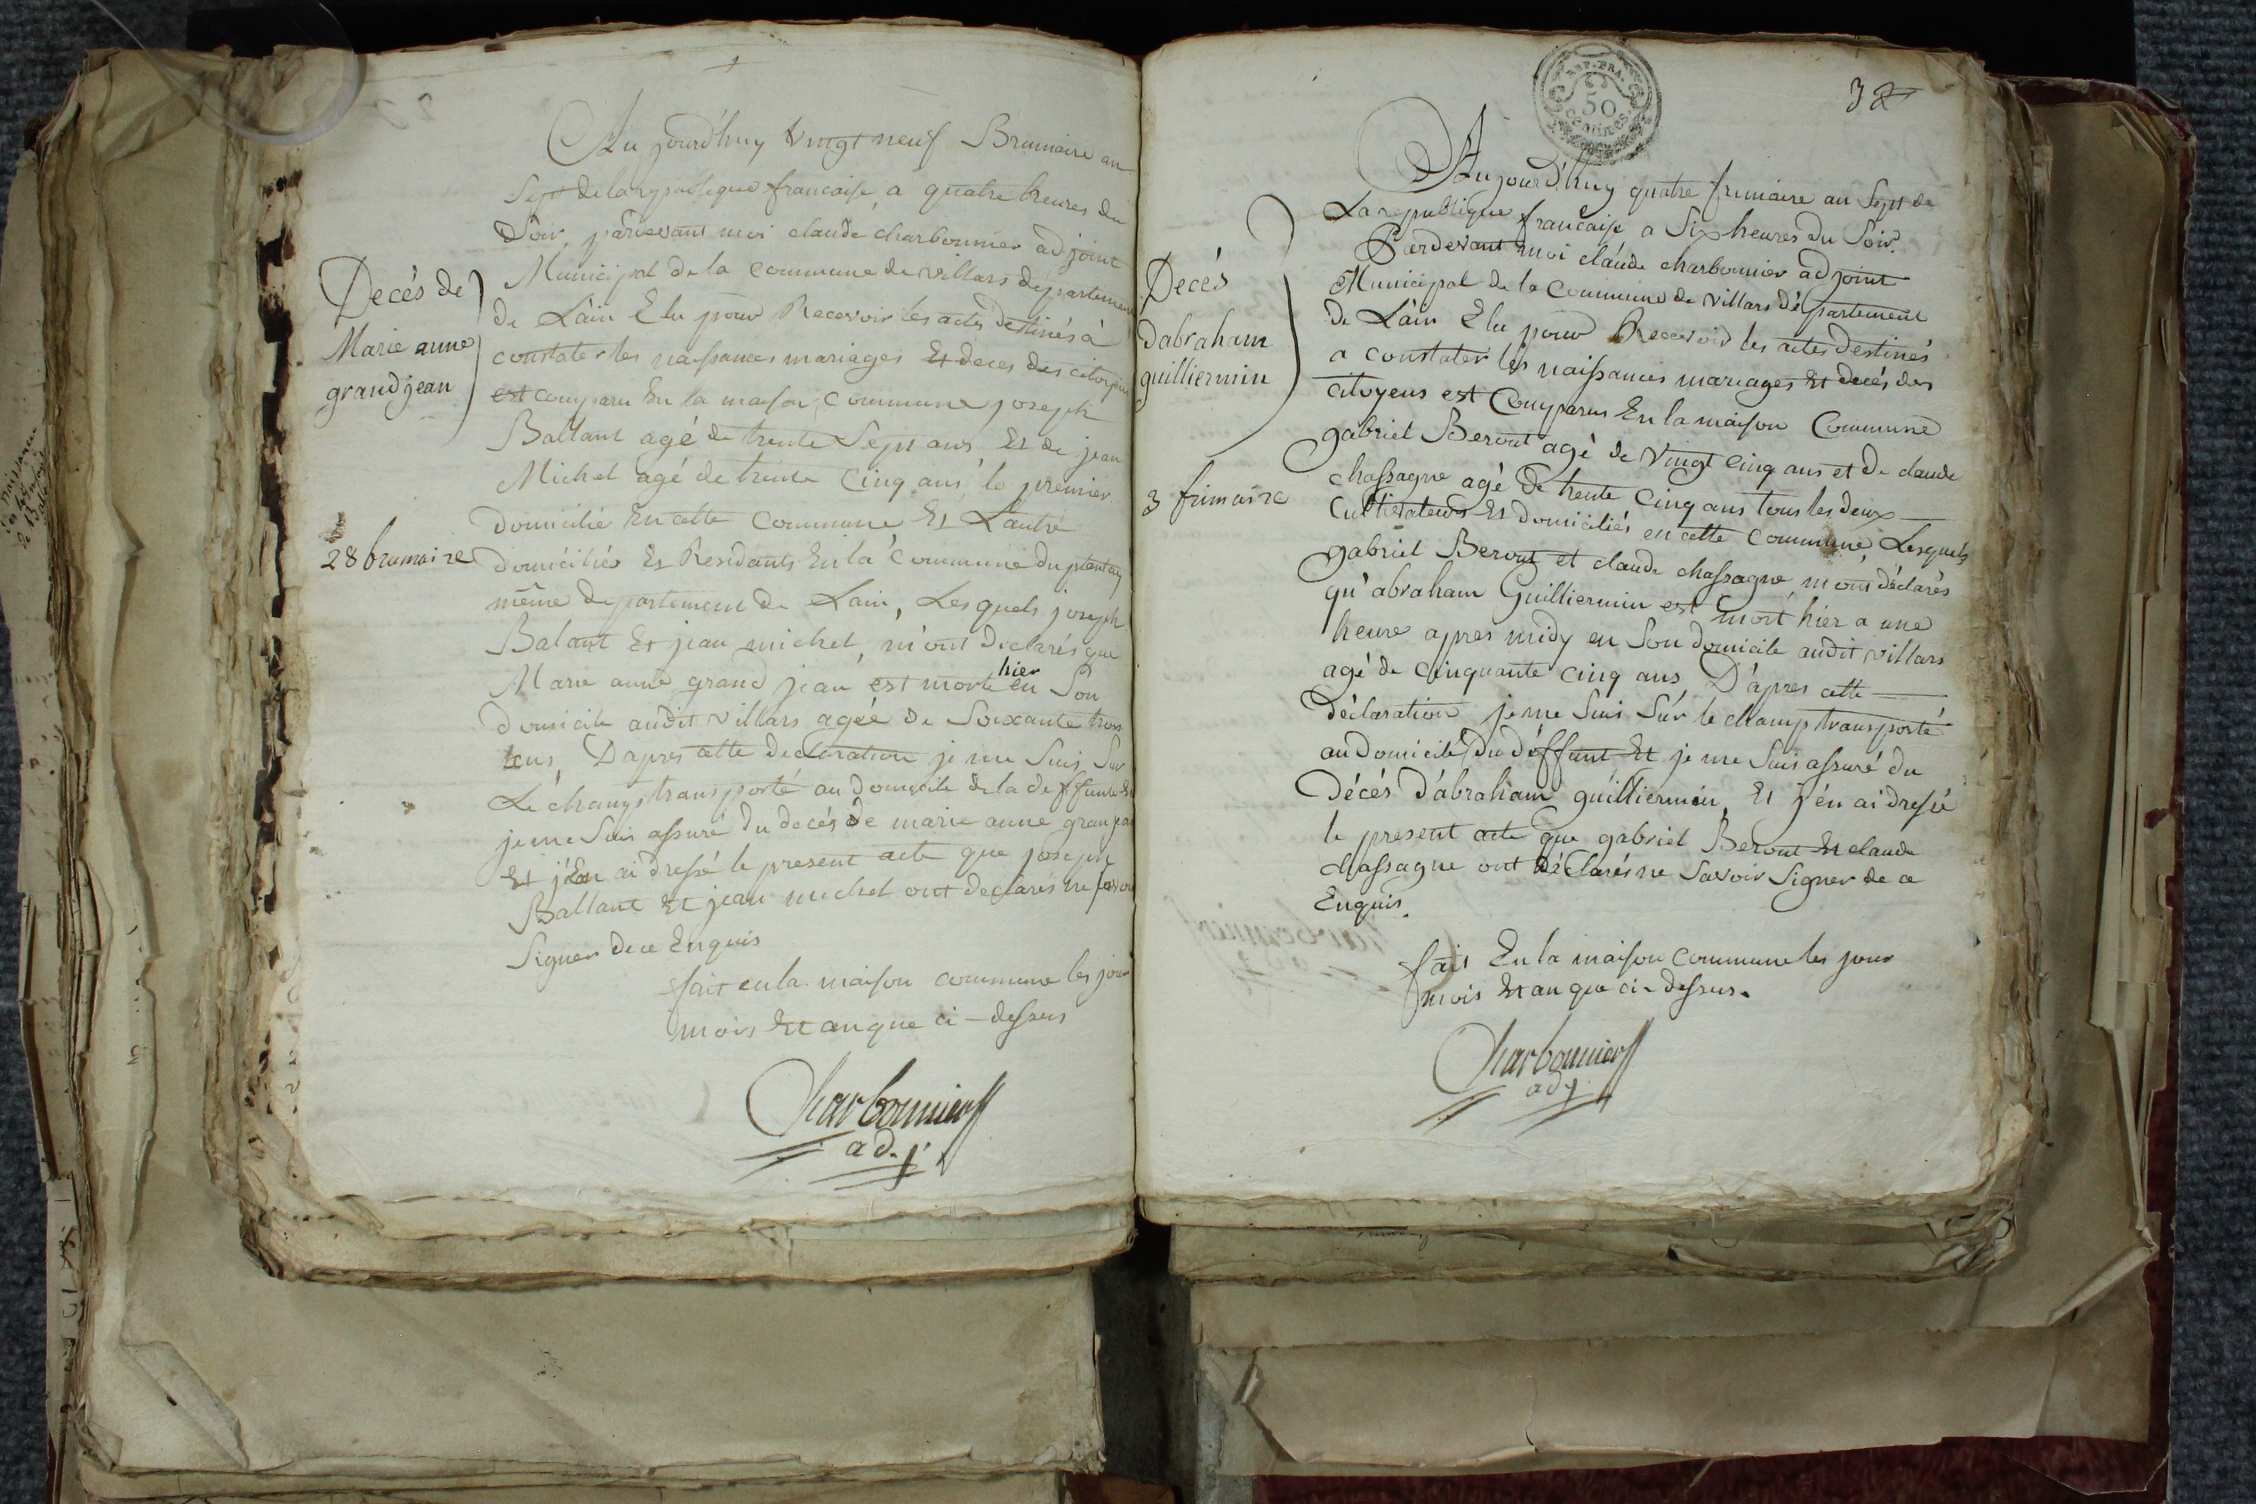 Aujourd'huy vingt neuf Brumaire an
Sept de la republique francaise, a quatre heures du
Soir, pardevant moi claude charbonnier adjoint
Municipal de la commune de villars département
de Lain Elu pour Recevoir les actes destinés à
constater les naissances mariages Et deces des citoyens
est comparu En la maison Commune joseph
Ballant agé de trente Sept ans, Et de jean
Michel agé de trente Cinq ans, le premier
domicilié En cette commune Et Lautre
domiciliés Et Residants En la Commune du plantay
même departement de Lain, Lesquels joseph
Balant Et jean michel, m'ont declarés que
Marie anne grand jean est morte hier en Son
domicile audit villars agée de Soixante trois
ans, D'apres cette declaration je me Suis Sur
Le champ transporté au domicile de la deffunte Et
je me Suis assuré du decés de marie anne granjean
Et j'en ai dressé le present acte que joseph
Ballant Et jean michel ont declarés ne savoir
Signer de ce Enquis
fait en la maison commune les jour
mois Et an que ci-dessus
Charbonnier
adj.
Decés de
Marie anne
grandjean
28 brumaire
REP. FRA.
50
CENTIMES
32
Aujourd'huy quatre frimaire an Sept de
La republique francaise a Six heures du Soir.
Pardevant moi claude charbonnier adjoint
Municipal de la Commune de villars département
de Lain Elu pour Recevoir les actes destinés
a constater les naissances mariages Et decés des
citoyens est Comparus En la maison Commune
gabriel Beront agé de Vingt cinq ans et de claude
chassagne agé de trente cinq ans tous les deux
Cultivateurs Et domiciliés en cette commune, Lesquels
gabriel Beront et claude chassagne, m'ont déclarés
qu'abraham Guilliermin est mort hier a une
heure apres midy en Son domicile audit villars
agé de cinquante cinq ans D'apres cette
déclaration je me Suis Sur le champ transporté
au domicile du déffunt Et je me Suis assuré du
Décés d'abraham guilliermin, Et j'en ai dressé
le present acte que gabriel Beront Et claude
chassagne ont déclarés ne Savoir Signer de ce
Enquis.
fait En la maison commune les jour
mois Et an que ci-dessus.
Charbonnier
adj.
Decés
dabraham
guilliermin
3 frimaire